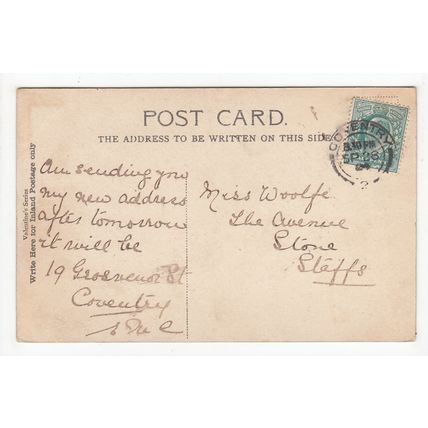 POST CARD.
THE ADDRESS TO BE WRITTEN ON THIS SIDE
COVENTRY
8.30 PM
SP 26
04
Valentine's Series
Write Here for Inland Postage only
Am sending you
my new address
after tomorrow
it will be
19 Grosvenor St
Coventry
Miss Woolfe
The Avenue
Stone
Staffs